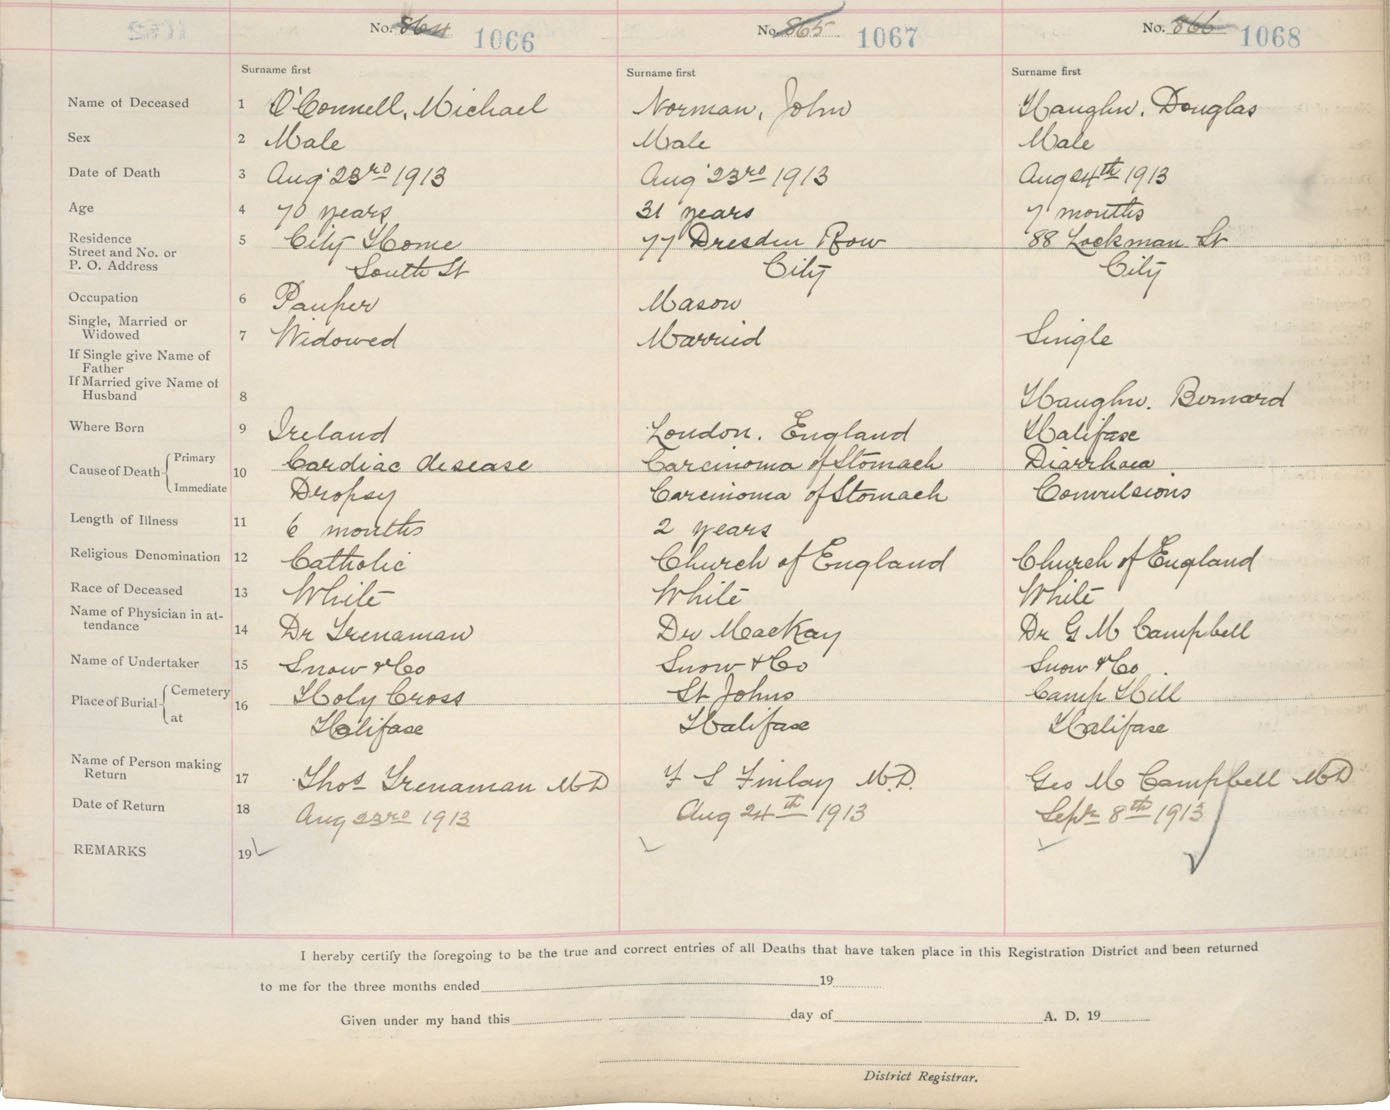 No. 864 1066 No. 865 1067 No. 866 1068
Surname first Surname first Surname first
Name of Deceased 1 O'Connell, Michael Norman, John Haughn, Douglas
Sex 2 Male Male Male
Date of Death 3 Aug 23rd 1913 Aug 23rd 1913 Aug 24th 1913
Age 4 70 years 31 years 7 months
Residence 5 City Home 77 Dresden Row 88 Lockman St
Street and No. or
P. O. Address South St City City
Occupation 6 Pauper Mason
Single, Married or
Widowed 7 Widowed Married Single
If Single give Name of
Father
If Married give Name of
Husband 8 Haughn. Bernard
Where Born 9 Ireland London, England Halifax
Cause of Death Primary 10 Cardiac disease Carcinoma of Stomach Diarrhoea
Immediate Dropsy Carcinoma of Stomach Convulsions
Length of Illness 11 6 months 2 years
Religious Denomination 12 Catholic Church of England Church of England
Race of Deceased 13 White White White
Name of Physician in at-
tendance 14 Dr Trenaman Dr MacKay Dr G M Campbell
Name of Undertaker 15 Snow & Co Snow & Co Snow & Co
Place of Burial Cemetery 16 Holy Cross St Johns Camp Hill
at Halifax Halifax Halifax
Name of Person making
Return 17 Thos Trenaman MD F S Finlay M.D. Geo M Campbell MD
Date of Return 18 Aug 23rd 1913 Aug 24th 1913 Sept 8th 1913
REMARKS 19
I hereby certify the foregoing to be the true and correct entries of all Deaths that have taken place in this Registration District and been returned
to me for the three months ended 19
Given under my hand this day of A. D. 19
District Registrar.